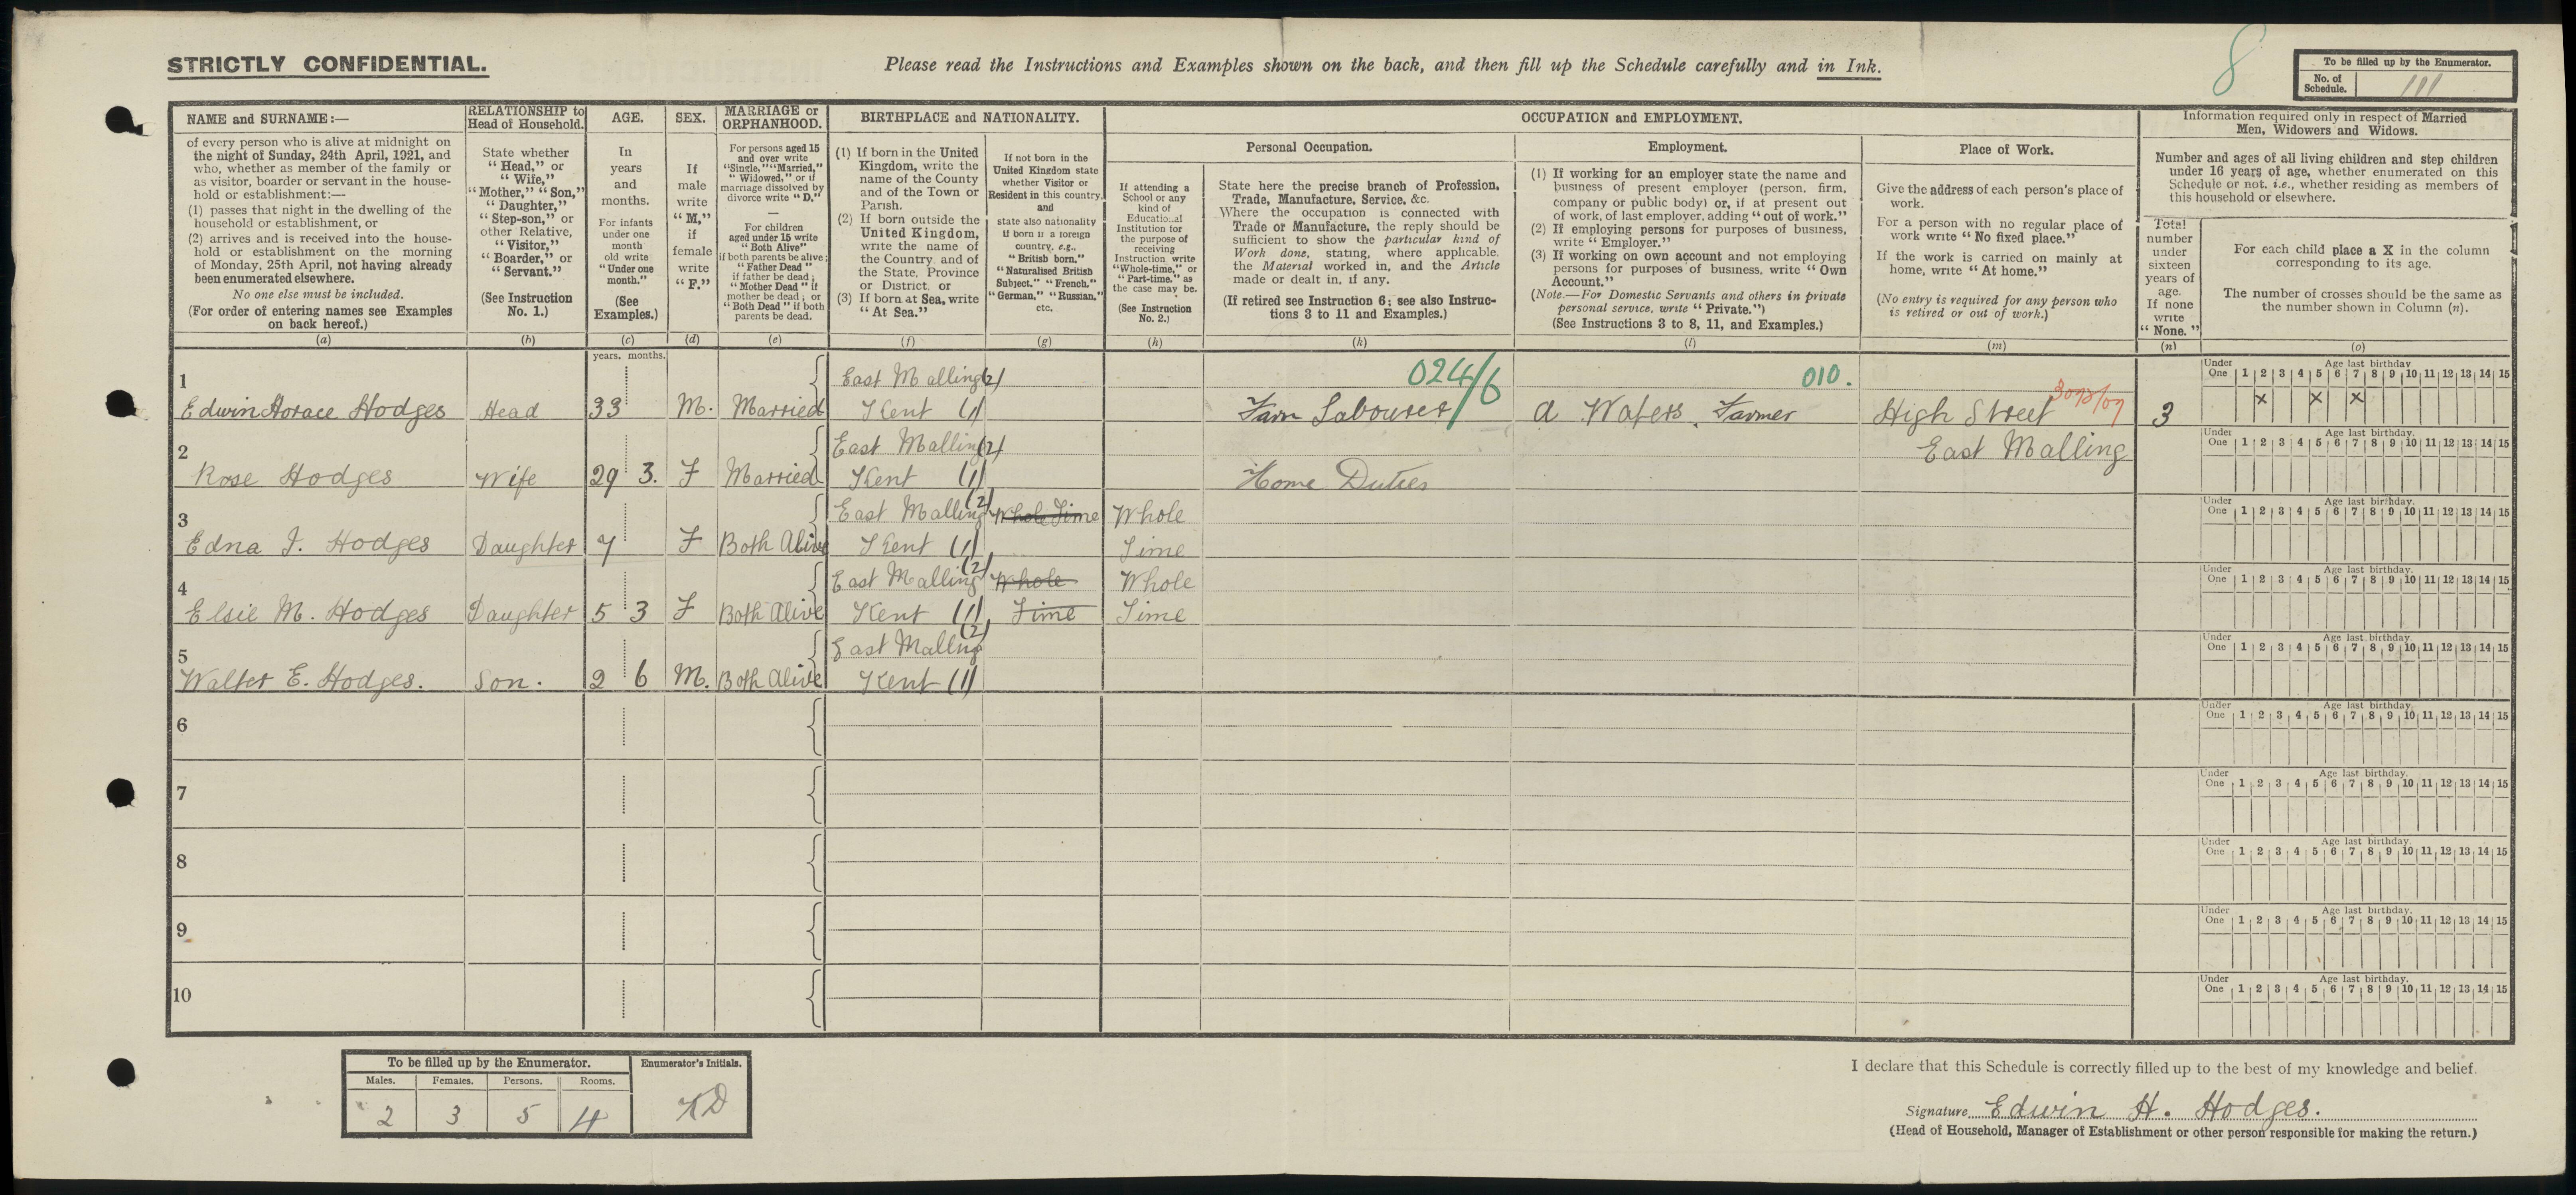 STRICTLY CONFIDENTIAL.
Please read the Instructions and Examples shown on the back, and then fill up the Schedule carefully and in Ink.
8
To be filled up by the Enumerator.
No. of Schedule. 111
NAME and SURNAME:—
of every person who is alive at midnight on
the night of Sunday, 24th April, 1921, and
who, whether as member of the family or
as visitor, boarder or servant in the house-
hold or establishment:—
(1) passes that night in the dwelling of the
household or establishment, or
(2) arrives and is received into the house-
hold or establishment on the morning
of Monday, 25th April, not having already
been enumerated elsewhere.
No one else must be included.
(For order of entering names see Examples
on back hereof.)
(a)
RELATIONSHIP to
Head of Household.
State whether
"Head," or
"Wife,"
"Mother," "Son,"
"Daughter,"
"Step-son," or
other Relative,
"Visitor,"
"Boarder," or
"Servant."
(See Instruction
No. 1.)
(b)
AGE.
In
years
and
months.
For infants
under one
month
old write
"Under one
month."
(See
Examples.)
(c)
years. months.
SEX.
If
male
write
"M,"
if
female
write
"F."
(d)
MARRIAGE or
ORPHANHOOD.
For persons aged 15
and over write
"Single," "Married,"
"Widowed," or if
marriage dissolved by
divorce write "D."
—
For children
aged under 15 write
"Both Alive"
if both parents be alive;
"Father Dead"
if father be dead;
"Mother Dead" if
mother be dead; or
"Both Dead" if both
parents be dead.
(e)
BIRTHPLACE and NATIONALITY.
(1) If born in the United
Kingdom, write the
name of the County
and of the Town or
Parish.
(2) If born outside the
United Kingdom,
write the name of
the Country, and of
the State, Province
or District, or
(3) If born at Sea, write
"At Sea."
(f)
If not born in the
United Kingdom state
whether Visitor or
Resident in this country,
and
state also nationality
if born in a foreign
country, e.g.,
"British born,"
"Naturalised British
Subject," "French,"
"German," "Russian,"
etc.
(g)
OCCUPATION and EMPLOYMENT.
If attending a
School or any
kind of
Educational
Institution for
the purpose of
receiving
Instruction write
"Whole-time," or
"Part-time," as
the case may be.
(See Instruction
No. 2.)
(h)
Personal Occupation.
State here the precise branch of Profession,
Trade, Manufacture, Service, &c.
Where the occupation is connected with
Trade or Manufacture, the reply should be
sufficient to show the particular kind of
Work done, stating, where applicable,
the Material worked in, and the Article
made or dealt in, if any.
(If retired see Instruction 6; see also Instruc-
tions 3 to 11 and Examples.)
(k)
Employment.
(1) If working for an employer state the name and
business of present employer (person, firm,
company or public body) or, if at present out
of work, of last employer, adding "out of work."
(2) If employing persons for purposes of business,
write "Employer."
(3) If working on own account and not employing
persons for purposes of business, write "Own
Account."
(Note.—For Domestic Servants and others in private
personal service, write "Private.")
(See Instructions 3 to 8, 11, and Examples.)
(l)
Place of Work.
Give the address of each person's place of
work.
For a person with no regular place of
work write "No fixed place."
If the work is carried on mainly at
home, write "At home."
(No entry is required for any person who
is retired or out of work.)
(m)
Information required only in respect of Married
Men, Widowers and Widows.
Number and ages of all living children and step children
under 16 years of age, whether enumerated on this
Schedule or not, i.e., whether residing as members of
this household or elsewhere.
Total
number
under
sixteen
years of
age.
If none
write
"None."
(n)
For each child place a X in the column
corresponding to its age.
The number of crosses should be the same as
the number shown in Column (n).
(o)
1
East Malling (2)
024/6
010.
3093/07
Edwin Horace Hodges Head 33 M. Married Kent (1) Farm Labourer A Waters. Farmer High Street 3
Under Age last birthday
One 1 2 3 4 5 6 7 8 9 10 11 12 13 14 15
x x x
2
East Malling (2)
East Malling
Rose Hodges Wife 29 3. F Married Kent (1) Home Duties
Under Age last birthday.
One 1 2 3 4 5 6 7 8 9 10 11 12 13 14 15
3
East Malling (2) Whole Time Whole
Edna J. Hodges Daughter 7 F Both Alive Kent (1) Time
Under Age last birthday.
One 1 2 3 4 5 6 7 8 9 10 11 12 13 14 15
4
East Malling (2) Whole Whole
Elsie M. Hodges Daughter 5 3 F Both Alive Kent (1) Time Time
Under Age last birthday.
One 1 2 3 4 5 6 7 8 9 10 11 12 13 14 15
5
East Malling (2)
Walter E. Hodges. Son. 2 6 M. Both Alive Kent (1)
Under Age last birthday.
One 1 2 3 4 5 6 7 8 9 10 11 12 13 14 15
6
Under Age last birthday.
One 1 2 3 4 5 6 7 8 9 10 11 12 13 14 15
7
Under Age last birthday.
One 1 2 3 4 5 6 7 8 9 10 11 12 13 14 15
8
Under Age last birthday.
One 1 2 3 4 5 6 7 8 9 10 11 12 13 14 15
9
Under Age last birthday.
One 1 2 3 4 5 6 7 8 9 10 11 12 13 14 15
10
Under Age last birthday.
One 1 2 3 4 5 6 7 8 9 10 11 12 13 14 15
To be filled up by the Enumerator.
Enumerator's Initials.
Males. Females. Persons. Rooms.
2 3 5 4
I declare that this Schedule is correctly filled up to the best of my knowledge and belief.
Signature Edwin H. Hodges.
(Head of Household, Manager of Establishment or other person responsible for making the return.)